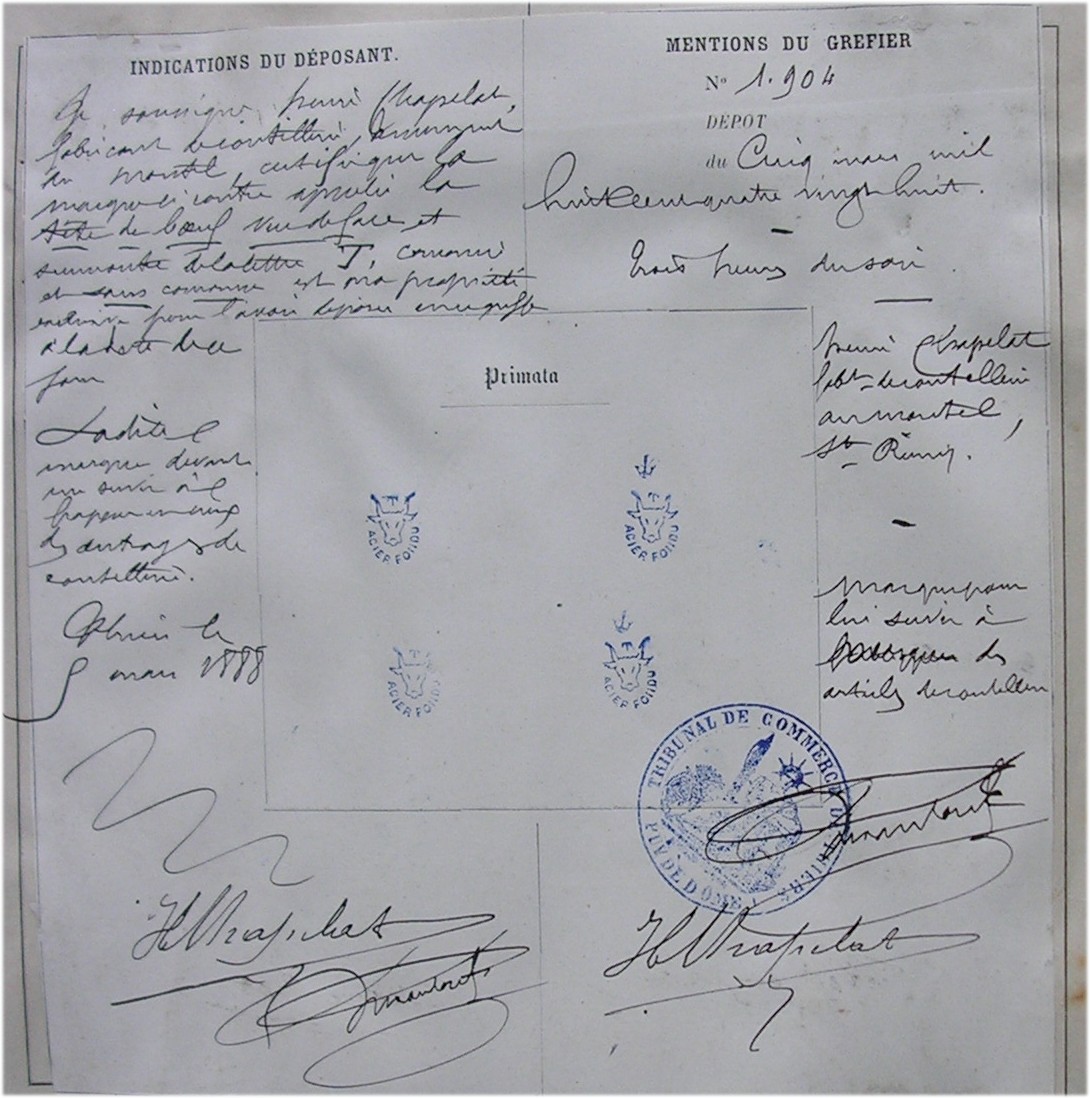 INDICATIONS DU DÉPOSANT.
Je soussigné, Henri Chapelat,
fabricant de coutellerie, demeurant
au Montel, certifie que la
marque ci contre appelée la
tête de bœuf vue de face et
surmontée de la lettre T, couronné
et sans couronne est ma propriété
exclusive pour l'avoir déposée au greffe
à la date de ce
jour
Ladite
marque devant
me servir à
frapper
des ouvrages de
coutellerie.
Thiers le
5 mars 1888
H Chapelat
MENTIONS DU GREFIER
N° 1.904
DEPOT
du Cinq mars mil
huit cent quatre vingt huit.
Trois heures du soir.
Henri Chapelat
fabt de coutellerie
au Montel,
St Rémy.
Marque pour
lui servir à
des
articles de coutellerie
Primata
T
ACIER FONDU
T
ACIER FONDU
T
ACIER FONDU
T
ACIER FONDU
TRIBUNAL DE COMMERCE DE THIERS
PUY DE DÔME
H Chapelat